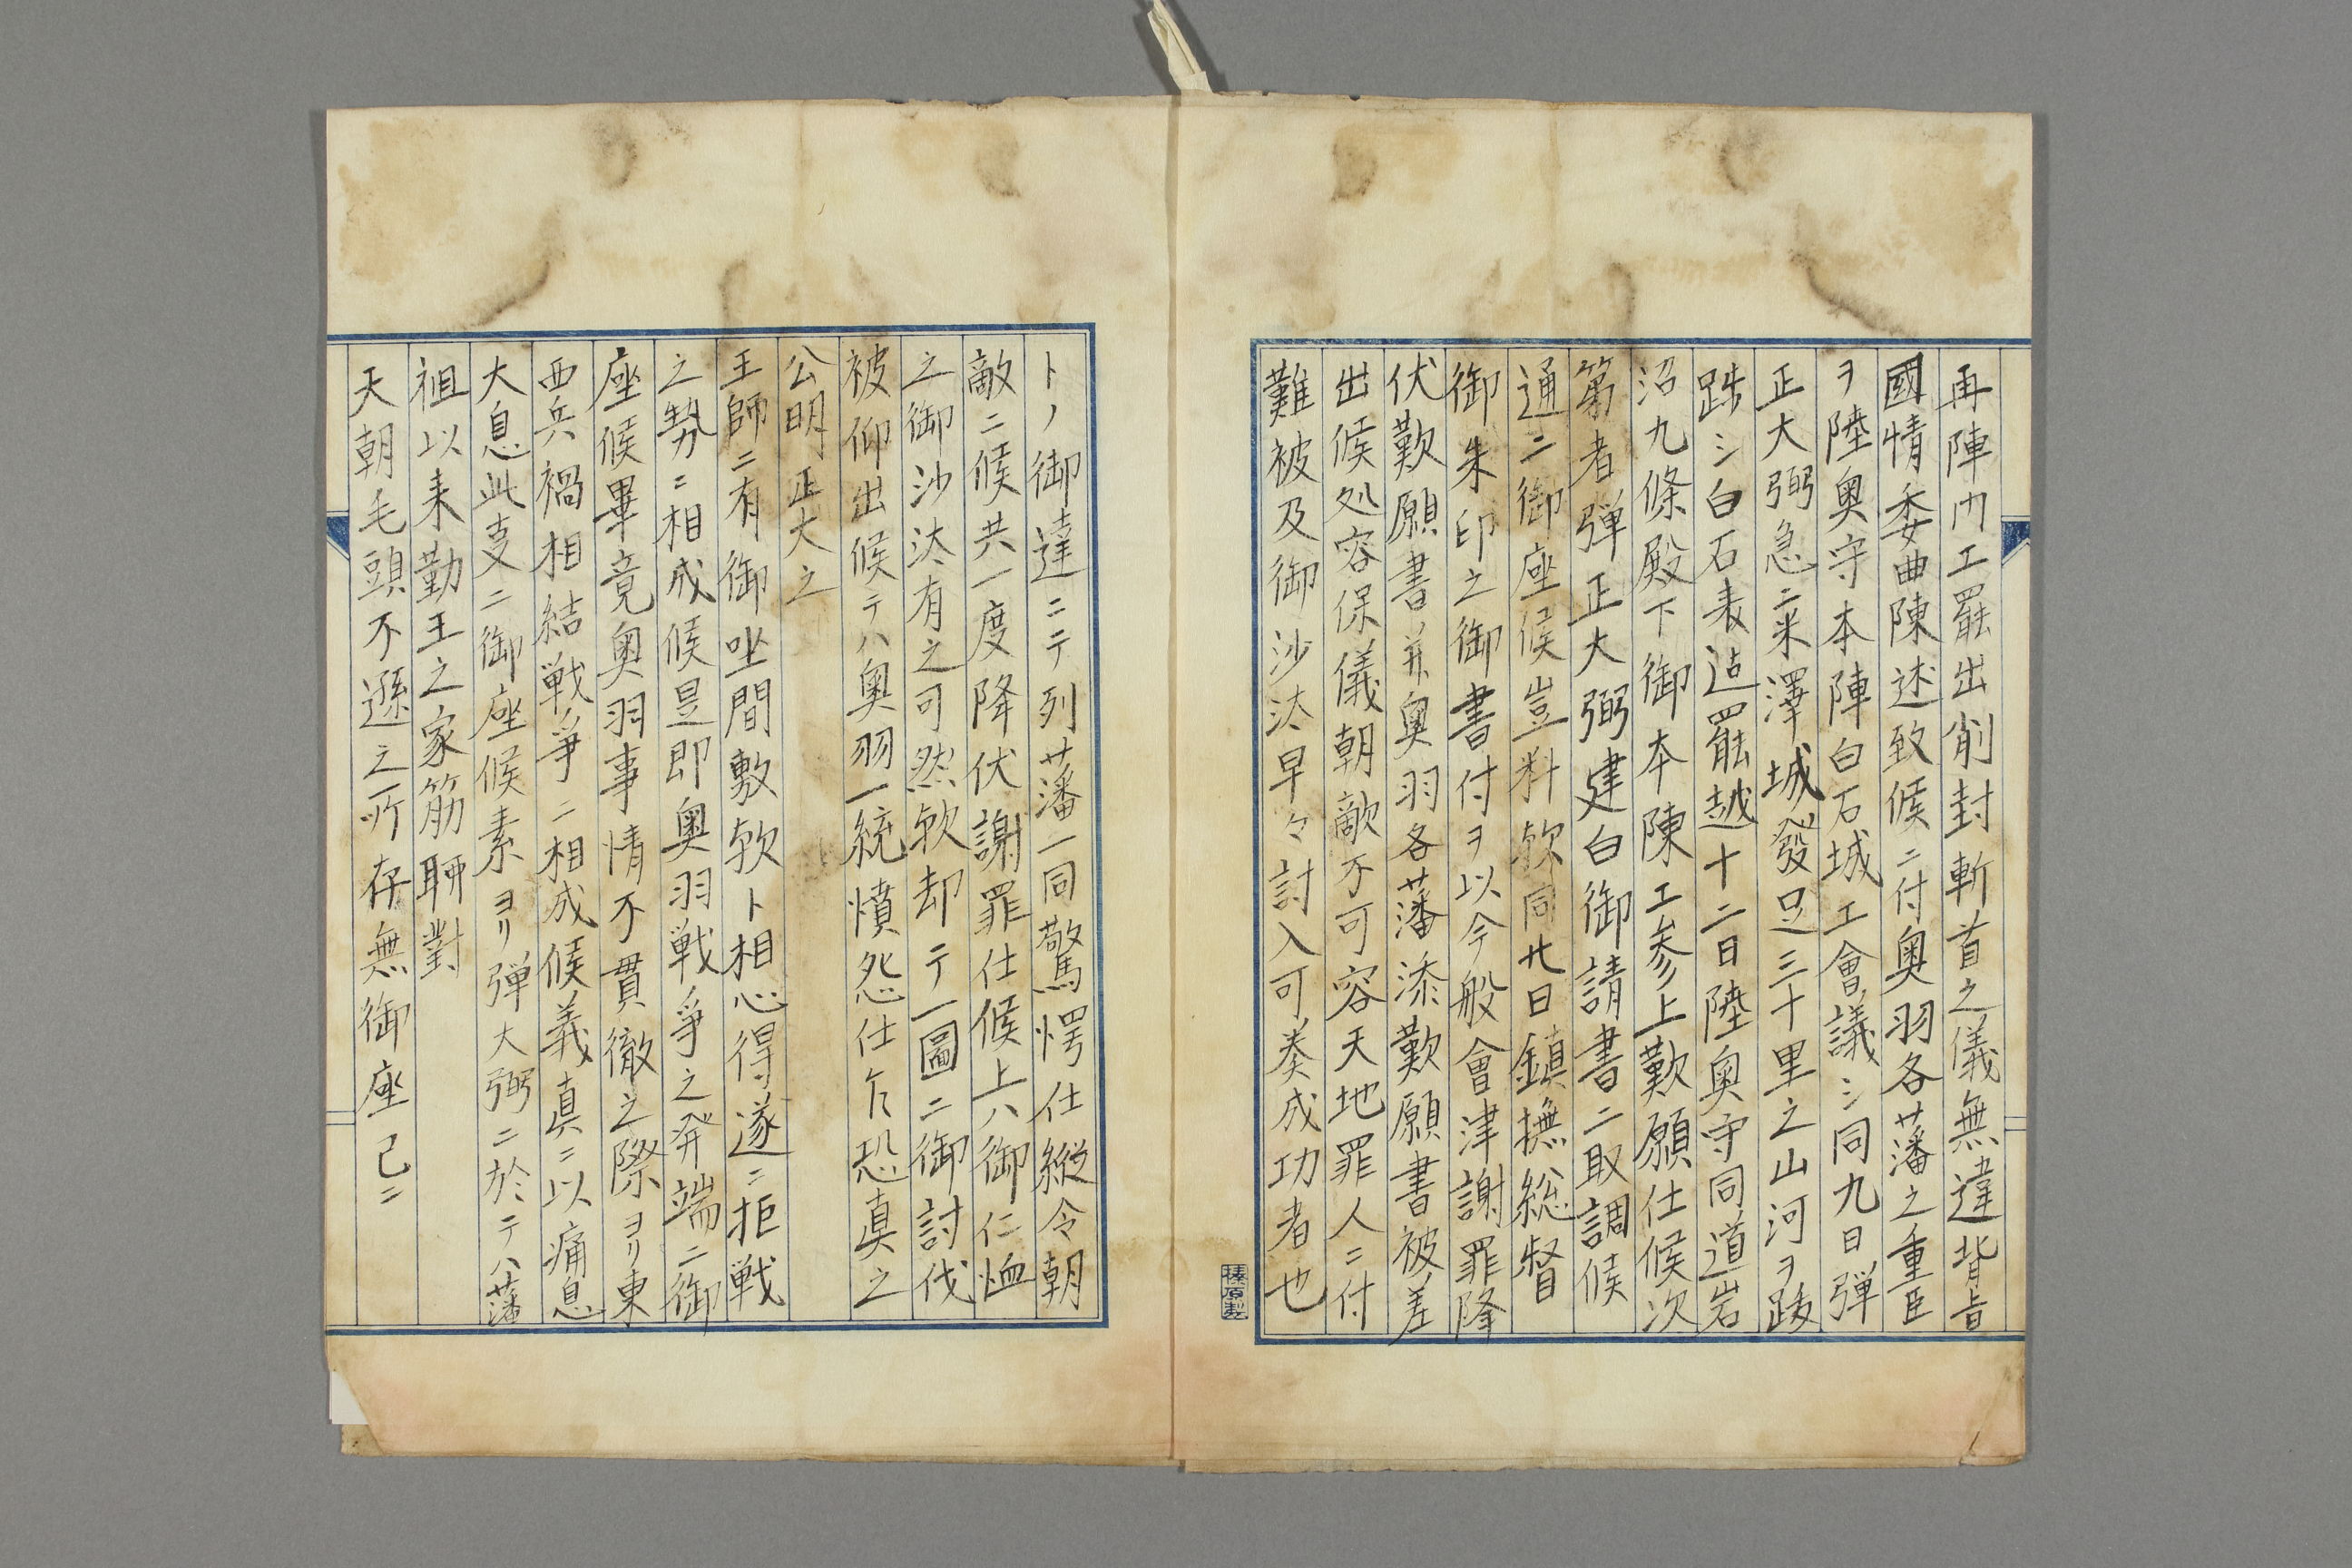 再陣門工罷出削封斬首之儀無違背旨
國情委曲陳述致候ニ付奥羽各藩之重臣
ヲ陸奥守本陣白石城工會議シ同九日弾
正大弼急ニ米澤城發足三十里之山河ヲ跋
跣シ白石表迠罷越十二日陸奥守同道岩
沼九條殿下御本陳工参上歎願仕候次
第者弾正大弼建白御請書ニ取調候
通ニ御座候豈料欤同廿日鎮撫総督
御朱印之御書付ヲ以今般會津謝罪降
伏歎願書并奥羽各藩添歎願書被差
出候処容保儀朝敵不可容天地罪人ニ付
難被及御沙汰早々討入可奏成功者也
トノ御達ニテ列藩一同驚愕仕縦令朝
敵ニ候共一度降伏謝罪仕候上ハ御仁恤
之御沙汰有之可然欤却テ一圖ニ御討伐
被仰出候テハ奥羽一統憤怨仕乍恐真之
公明正大之
王師ニ有御坐間敷欤ト相心得遂ニ拒戦
之勢ニ相成候是即奥羽戦爭之発端ニ御
座候畢竟奥羽事情不貫徹之際ヨリ東
西兵禍相結戦爭ニ相成候義真ニ以痛息
大息此支ニ御座候素ヨリ弾大弼ニ於テハ藩
祖以来勤王之家筋聊對
天朝毛頭不遜之所存無御座已ニ
榛原製